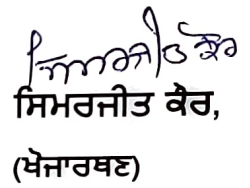 ਸਿਮਰਜੀਤ ਕੌਰ
ਸਿਮਰਜੀਤ ਕੌਰ,
(ਖੋਜਾਰਥਣ)